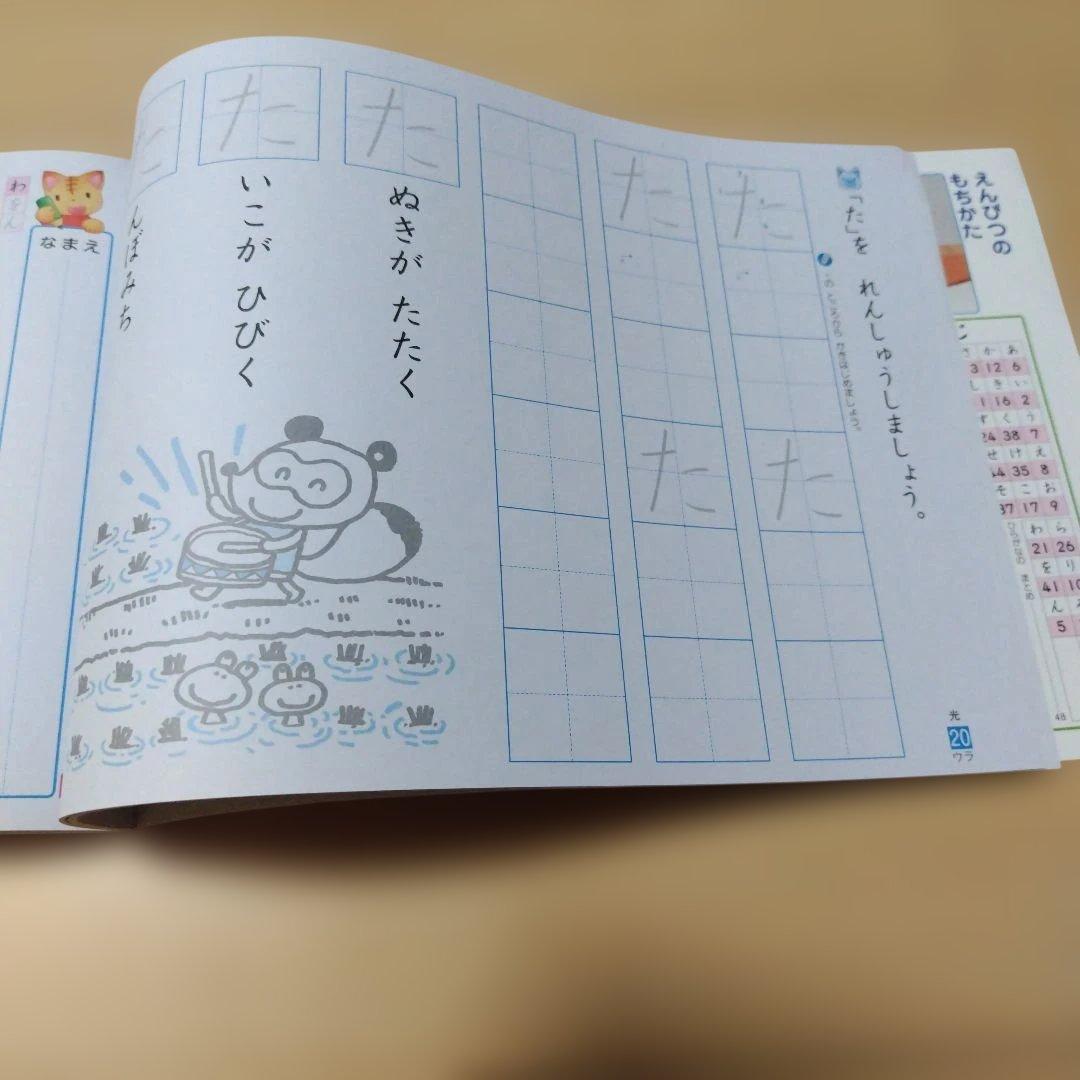 えんぴつの
もちかた
「た」を れんしゅうしましょう。
のところから かきはじめましょう。
た
た
た
た
た
ぬきが たたく
た
いこが ひびく
んぼみち
なまえ
わをん
光
20
ウラ
あ か さ
6 12 3
い き し
2 16 1
う く す
7 38 24
え け せ
8 35 44
お こ そ
9 17 37
ら わ
26 21
り を
10 41
ん
5
ひらがなの まとめ
48